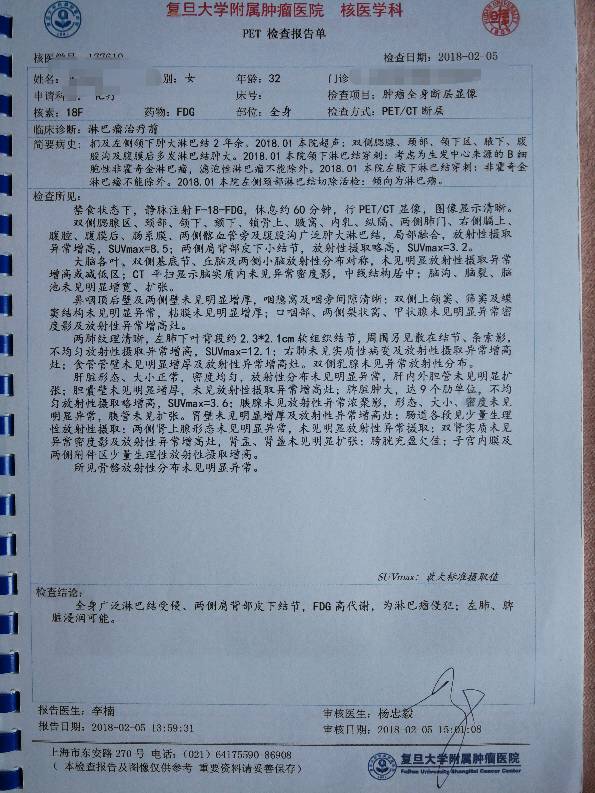 复旦大学附属肿瘤医院 核医学科
PET 检查报告单
检查日期：2018-02-05
姓名： 别：女 年龄：32 门诊
申请科 床号： 检查项目：肿瘤全身断层显像
核素：18F 药物：FDG 部位：全身 检查方式：PET/CT 断层
临床诊断：淋巴瘤治疗前
简要病史：扪及左侧颌下肿大淋巴结2年余。2018.01 本院超声：双侧腮腺、颈部、颌下区、腋下、腹
股沟及腹膜后多发淋巴结肿大。2018.01 本院颌下淋巴结穿刺：考虑为生发中心来源的B细
胞性非霍奇金淋巴瘤，滤泡性淋巴瘤不能除外。2018.01 本院左腋下淋巴结穿刺：非霍奇金
淋巴瘤不能除外。2018.01 本院左侧颈部淋巴结切除活检：倾向为淋巴瘤。
检查所见：
禁食状态下，静脉注射 F-18-FDG，休息约 60 分钟，行 PET/CT 显像，图像显示清晰。
双侧腮腺区、颈部、颌下、颏下、锁骨上、腋窝、内乳、纵隔、两侧肺门、右侧膈上、
腹腔、腹膜后、肠系膜、两侧髂血管旁及腹股沟广泛肿大淋巴结，局部融合，放射性摄取
异常增高，SUVmax=8.5；两侧肩背部皮下小结节，放射性摄取略高，SUVmax=3.2。
大脑各叶、双侧基底节、丘脑及两侧小脑放射性分布对称，未见明显放射性摄取异常
增高或减低区；CT 平扫显示脑实质内未见异常密度影，中线结构居中；脑沟、脑裂、脑
池未见明显增宽、扩张。
鼻咽顶后壁及两侧壁未见明显增厚，咽隐窝及咽旁间隙清晰；双侧上颌窦、筛窦及蝶
窦结构未见明显异常，粘膜未见明显增厚；口咽部、两侧梨状窝、甲状腺未见明显异常密
度影及放射性异常增高灶。
两肺纹理清晰，左肺下叶背段约 2.3*2.1cm 软组织结节，周围另见散在结节、条索影，
不均匀放射性摄取异常增高，SUVmax=12.1；右肺未见实质性病变及放射性摄取异常增高
灶；食管管壁未见明显增厚及放射性异常增高灶。双侧乳腺未见异常放射性分布。
肝脏形态、大小正常，密度均匀，放射性分布未见明显异常，肝内外胆管未见明显扩
张；胆囊壁未见明显增厚，未见放射性摄取异常增高灶；脾脏肿大，达 9 个肋单位，不均
匀放射性摄取增高，SUVmax=3.6；胰腺未见放射性异常浓聚影，形态、大小、密度未见
明显异常，胰管未见扩张。胃壁未见明显增厚及放射性异常增高灶；肠道各段见少量生理
性放射性摄取；两侧肾上腺形态未见明显异常，未见明显放射性异常摄取；双肾实质未见
异常密度影及放射性异常增高灶，肾盂、肾盏未见明显扩张；膀胱充盈欠佳；子宫内膜及
两侧附件区少量生理性放射性摄取增高。
所见骨骼放射性分布未见明显异常。
SUVmax：最大标准摄取值
检查结论：
全身广泛淋巴结受侵、两侧肩背部皮下结节，FDG 高代谢，为淋巴瘤侵犯；左肺、脾
脏浸润可能。
报告医生：辛楠 审核医生：杨忠毅
报告日期：2018-02-05 13:59:31 审核日期：2018-02-05 15:01:08
上海市东安路 270 号 电话：(021) 64175590-86908
（ 本检查报告及图像仅供参考 重要资料请妥善保存）
复旦大学附属肿瘤医院
Fudan University Shanghai Cancer Center